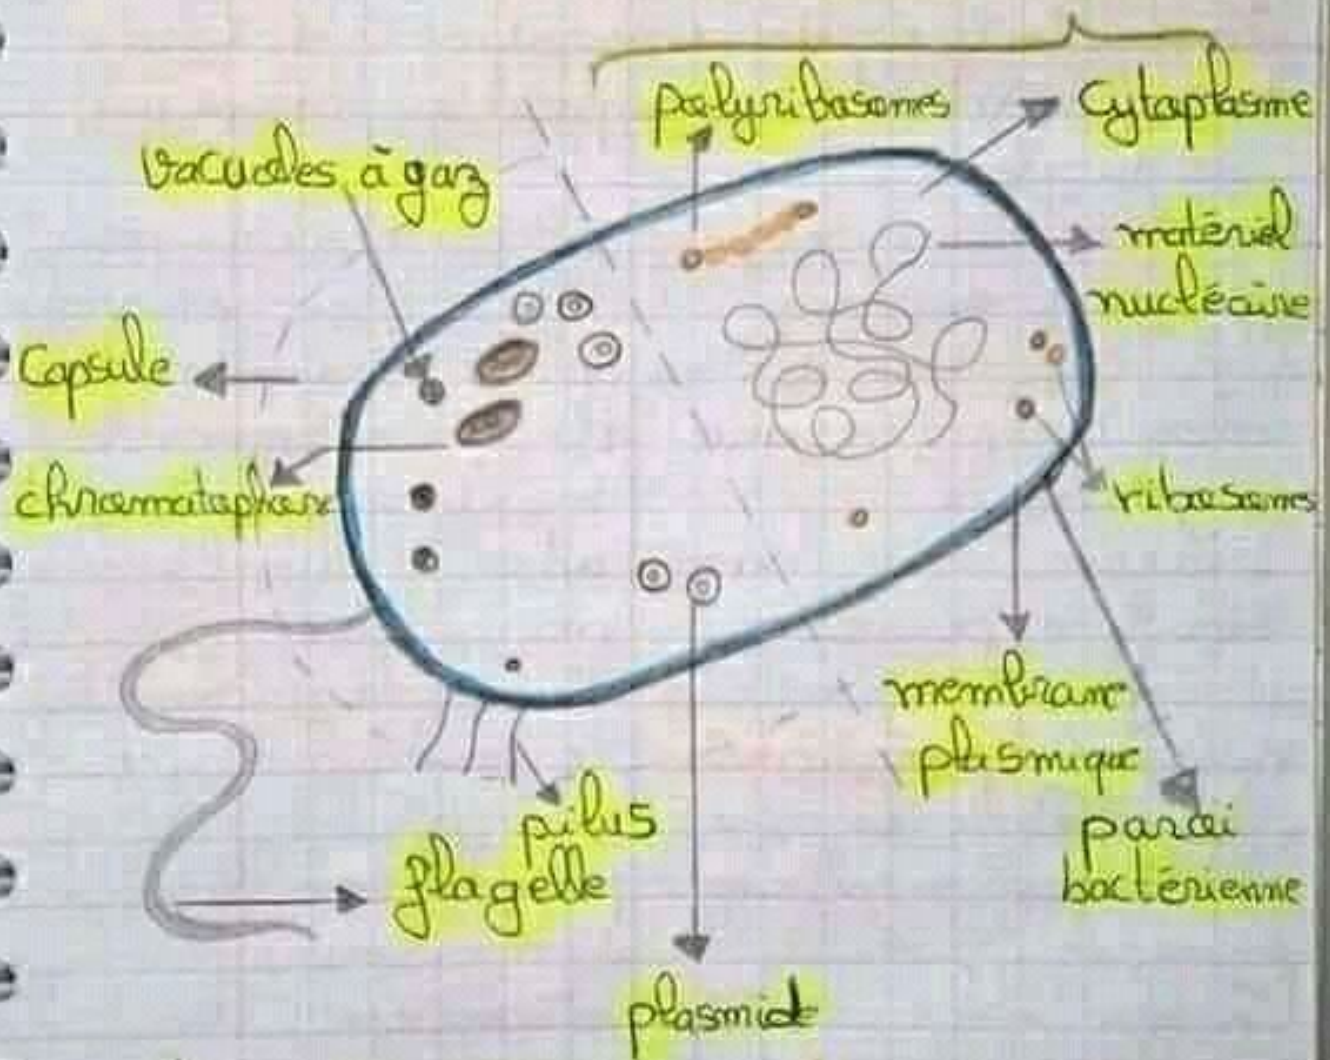 polyribosomes
Cytoplasme
Vacuoles à gaz
matériel
nucléaire
Capsule
chromatophore
ribosomes
membrane
plasmique
pilus
paroi
bactérienne
flagelle
plasmide